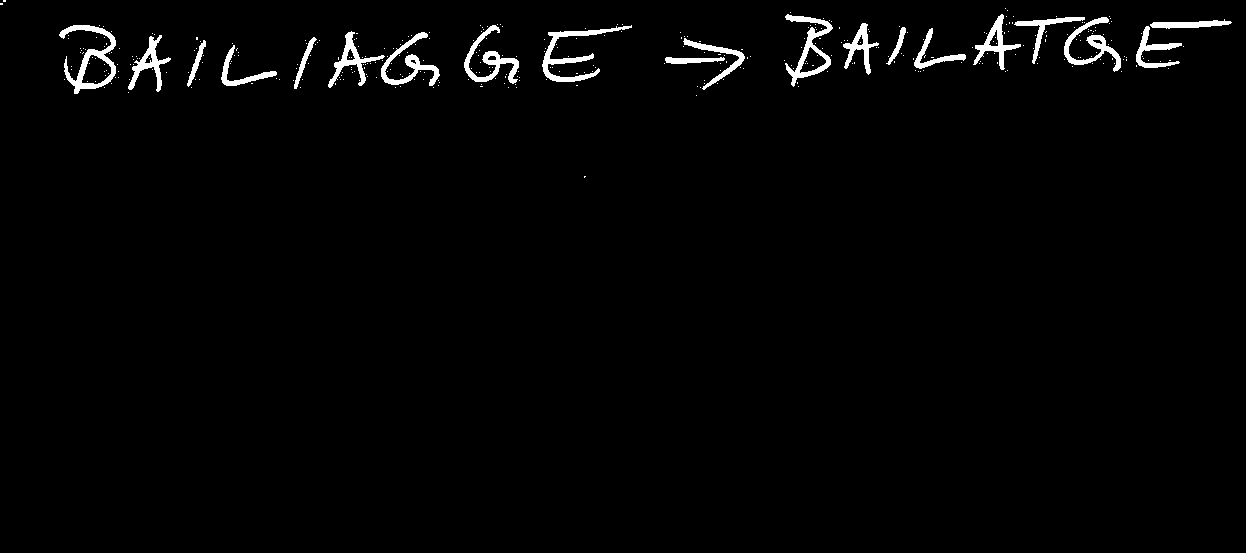 BAILIAGGE → BAILATGE